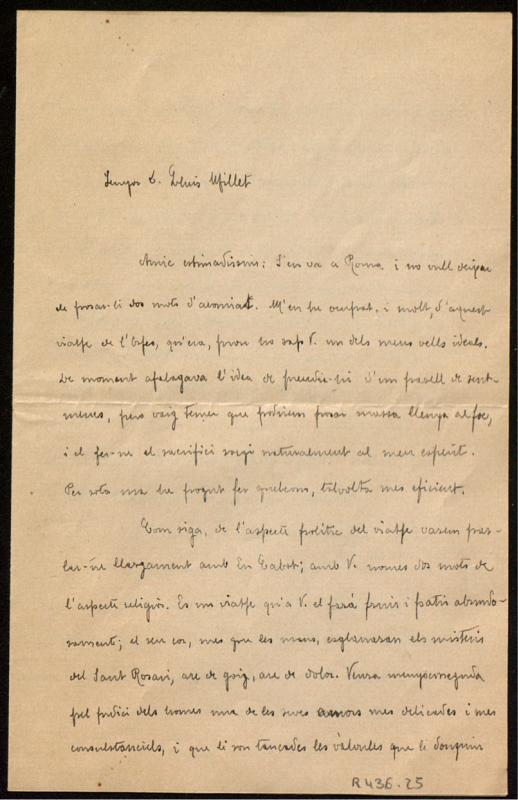 Senyor D. Lluis Millet
Amic estimadissim: S'en va a Roma i no vull deixar
de posar-li dos mots d'acomiat. M'en he ocupat, i molt, d'aquest
viatje de l'Orfeo, qu'era, prou ho sap V. un dels meus vells ideals.
De moment afalagava l'idea de precedir-hi d'un parell de set-
manes, pero vaig temer que podriem posar massa llenya al foc,
i el fer-ne el sacrifici sorgi naturalment al meu esperit.
Per sota ma he pogut fer quelcom, talvolta mes eficient.
Com siga, de l'aspecte politic del viatje varem par-
lar-ne llargament amb En Cabot; amb V. nomes dos mots de
l'aspecte religiós. Es un viatje qu'a V. el farà fruir i patir abundo-
sament; el seu cor, mes que les mans, esgranaran els misteris
del Sant Rosari, are de goig, are de dolor. Veura menyspreuada
pel judici dels homes una de les seves amors mes delicades i mes
consubstancials, i que li son tancades les vàlvules que li donguin
R 436.25